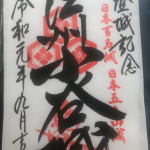 登城記念
日本百名城
日本五大山城
江州小谷城
令和元年九月